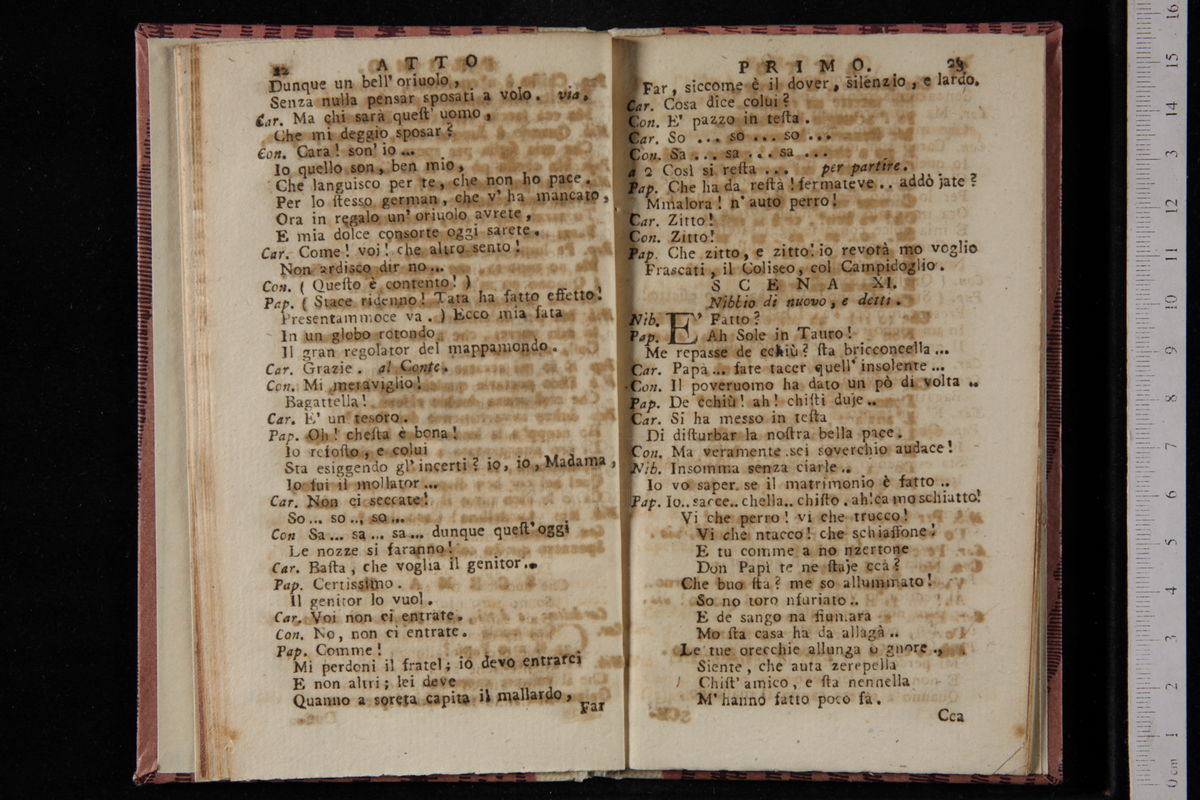 22 ATTO
Dunque un bell' oriuolo,
Senza nulla pensar sposati a volo. via.
Car. Ma chi sarà quest' uomo,
Che mi deggio sposar?
Con. Cara! son' io ...
Io quello son, ben mio,
Che languisco per te, che non ho pace.
Per lo stesso german, che v' ha mancato,
Ora in regalo un' oriuolo avrete,
E mia dolce consorte oggi sarete.
Car. Come! voi! che altro sento!
Non ardisco dir no...
Con. ( Questo è contento! )
Pap. ( Stace ridenno! Tata ha fatto effetto!
Presentammoce va. ) Ecco mia fata
In un globo rotondo
Il gran regolator del mappamondo.
Car. Grazie. al Conte.
Con. Mi meraviglio!
Bagattella!
Car. E' un tesoro.
Pap. Oh! chesta è bona!
Io resosto, e colui
Sta esiggendo gl' incerti? io, io, Madama,
Io fui il mollator ...
Car. Non ci seccate!
So... so... so...
Con Sa... sa... sa... dunque quest' oggi
Le nozze si faranno!
Car. Basta, che voglia il genitor..
Pap. Certissimo.
Il genitor lo vuol.
Car. Voi non ci entrate.
Con. No, non ci entrate.
Pap. Comme!
Mi perdoni il fratel; io devo entrarci
E non altri; lei deve
Quanno a soreta capita il mallardo,
Far
PRIMO. 23
Far, siccome è il dover, silenzio, e lardo.
Car. Cosa dice colui?
Con. E' pazzo in testa.
Car. So ... so ... so ...
Con. Sa ... sa ... sa ...
a 2 Così si resta ... per partire.
Pap. Che ha da restà! fermateve .. addò jate?
Mmalora! n' auto perro!
Car. Zitto!
Con. Zitto!
Pap. Che zitto, e zitto! io revotà mo voglio
Frascati, il Coliseo, col Campidoglio.
SCENA XI.
Nibbio di nuovo, e detti.
Nib. E' Fatto?
Pap. Ah Sole in Tauro!
Me repasse de cchiù? sta bricconcella ...
Car. Papà ... fate tacer quell' insolente ...
Con. Il poveruomo ha dato un pò di volta ..
Pap. De cchiù! ah! chisti duje ..
Car. Si ha messo in testa
Di disturbar la nostra bella pace.
Con. Ma veramente sei soverchio audace!
Nib. Insomma senza ciarle ..
Io vo saper se il matrimonio è fatto ..
Pap. Io.. sacce.. chella.. chisto. ah! ca mo schiatto!
Vi che perro! vi che trucco!
Vi che ntacco! che schiaffone!
E tu comme a no nzertone
Don Papi te ne staje ccà?
Che buo sta? me so allummato!
So no toro nfuriato..
E de sango na fiumara
Mo sta casa ha da allagà ..
Le tue orecchie allunga o gnore ..
Siente, che auta zerepella
Chist' amico, e sta nennella
M' hanno fatto poco fà.
Cca
16
15
14
3
12
11
10
9
8
7
6
5
4
3
2
1
0 cm